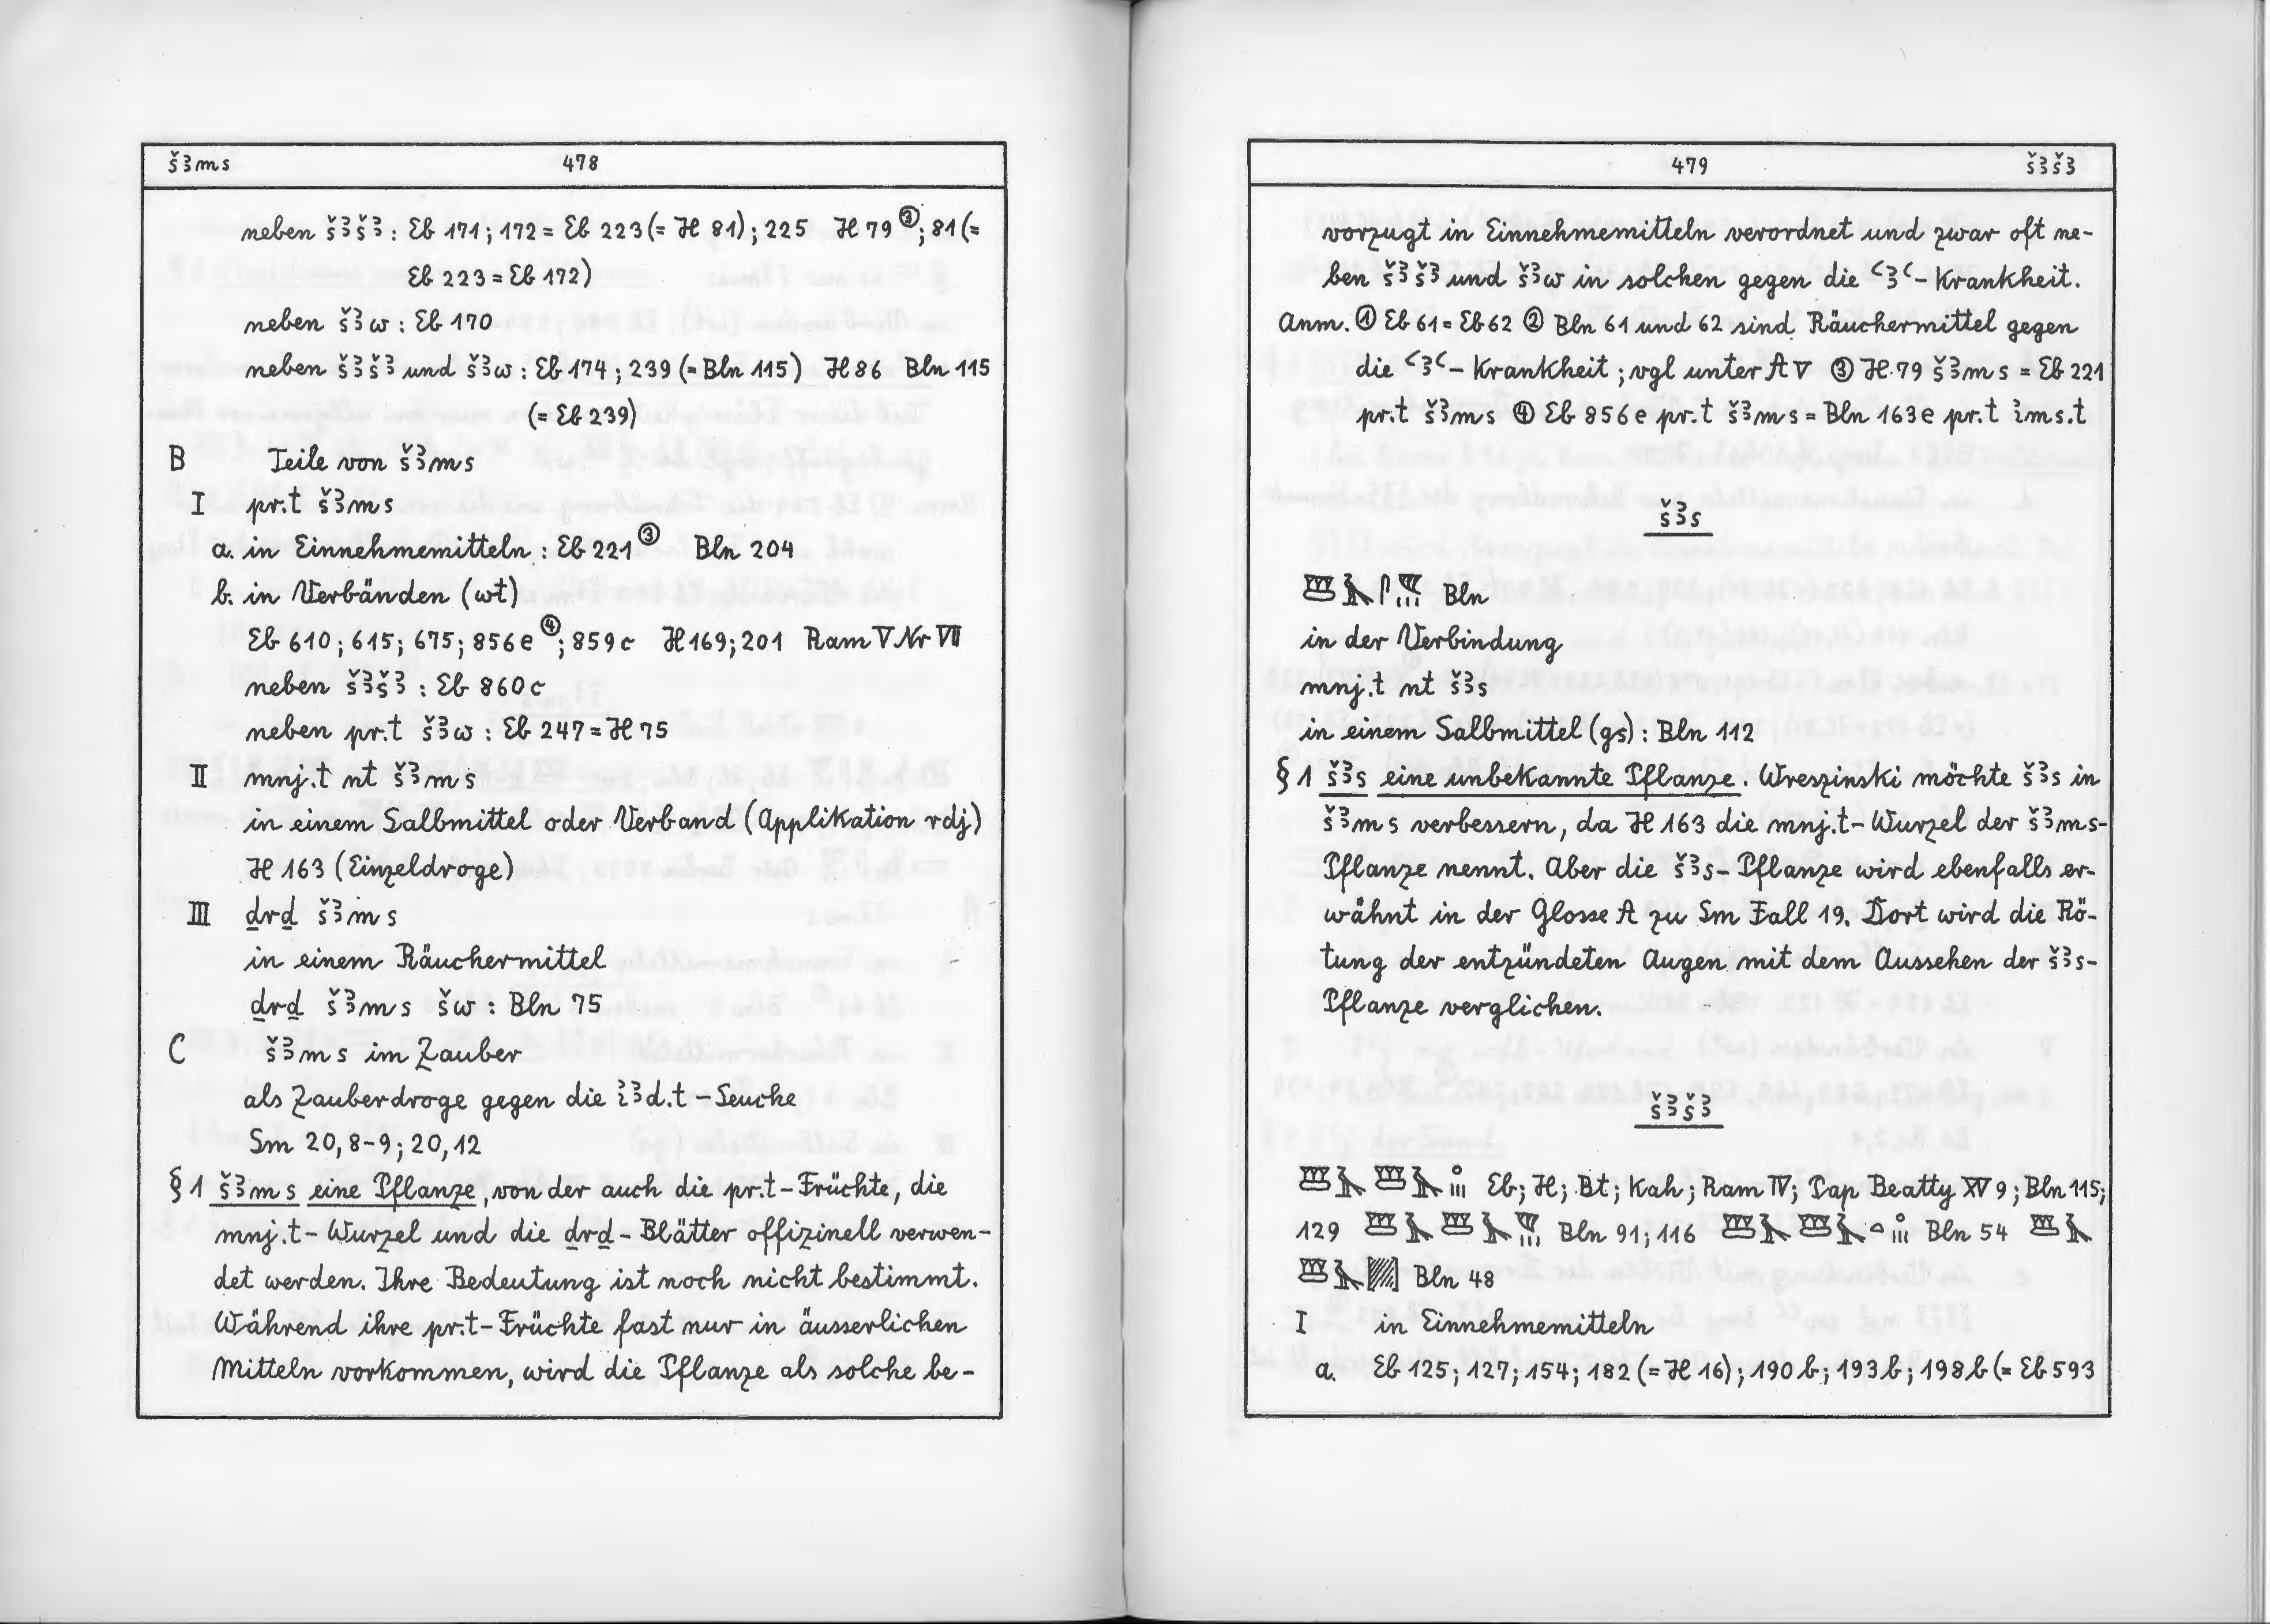 šꜣms 478
neben šꜣšꜣ : Eb 171; 172 = Eb 223 (= H 81); 225 H 79 ③; 81 (=
Eb 223 = Eb 172)
neben šꜣw : Eb 170
neben šꜣšꜣ und šꜣw : Eb 174; 239 (= Bln 115) H 86 Bln 115
(= Eb 239)
B Teile von šꜣms
I pr.t šꜣms
a. in Einnehmemitteln : Eb 221 ③ Bln 204
b. in Verbänden (wt)
Eb 610; 615; 675; 856e ④; 859c H 169; 201 Ram V Nr VII
neben šꜣšꜣ : Eb 860c
neben pr.t šꜣw : Eb 247 = H 75
II mnj.t nt šꜣms
in einem Salbmittel oder Verband (Applikation rdj)
H 163 (Einzeldroge)
III ḏrḏ šꜣms
in einem Räuchermittel
ḏrḏ šꜣms šw : Bln 75
C šꜣms im Zauber
als Zauberdroge gegen die iꜣd.t-Seuche
Sm 20, 8-9; 20, 12
§ 1 šꜣms eine Pflanze, von der auch die pr.t-Früchte, die
mnj.t-Wurzel und die ḏrḏ-Blätter offizinell verwen-
det werden. Ihre Bedeutung ist noch nicht bestimmt.
Während ihre pr.t-Früchte fast nur in äusserlichen
Mitteln vorkommen, wird die Pflanze als solche be-
479 šꜣšꜣ
vorzugt in Einnehmemitteln verordnet und zwar oft ne-
ben šꜣšꜣ und šꜣw in solchen gegen die ꜥꜣꜥ-Krankheit.
Anm. ① Eb 61 = Eb 62 ② Bln 61 und 62 sind Räuchermittel gegen
die ꜥꜣꜥ-Krankheit; vgl unter A V ③ H 79 šꜣms = Eb 221
pr.t šꜣms ④ Eb 856e pr.t šꜣms = Bln 163e pr.t ims.t
šꜣs
Bln
in der Verbindung
mnj.t nt šꜣs
in einem Salbmittel (gs) : Bln 112
§ 1 šꜣs eine unbekannte Pflanze. Wreszinski möchte šꜣs in
šꜣms verbessern, da H 163 die mnj.t-Wurzel der šꜣms-
Pflanze nennt. Aber die šꜣs-Pflanze wird ebenfalls er-
wähnt in der Glosse A zu Sm Fall 19. Dort wird die Rö-
tung der entzündeten Augen mit dem Aussehen der šꜣs-
Pflanze verglichen.
šꜣšꜣ
Eb; H; Bt; Kah; Ram IV; Pap Beatty XV 9; Bln 115;
129 Bln 91; 116 Bln 54
Bln 48
I in Einnehmemitteln
a. Eb 125; 127; 154; 182 (= H 16); 190b; 193b; 198b (= Eb 593